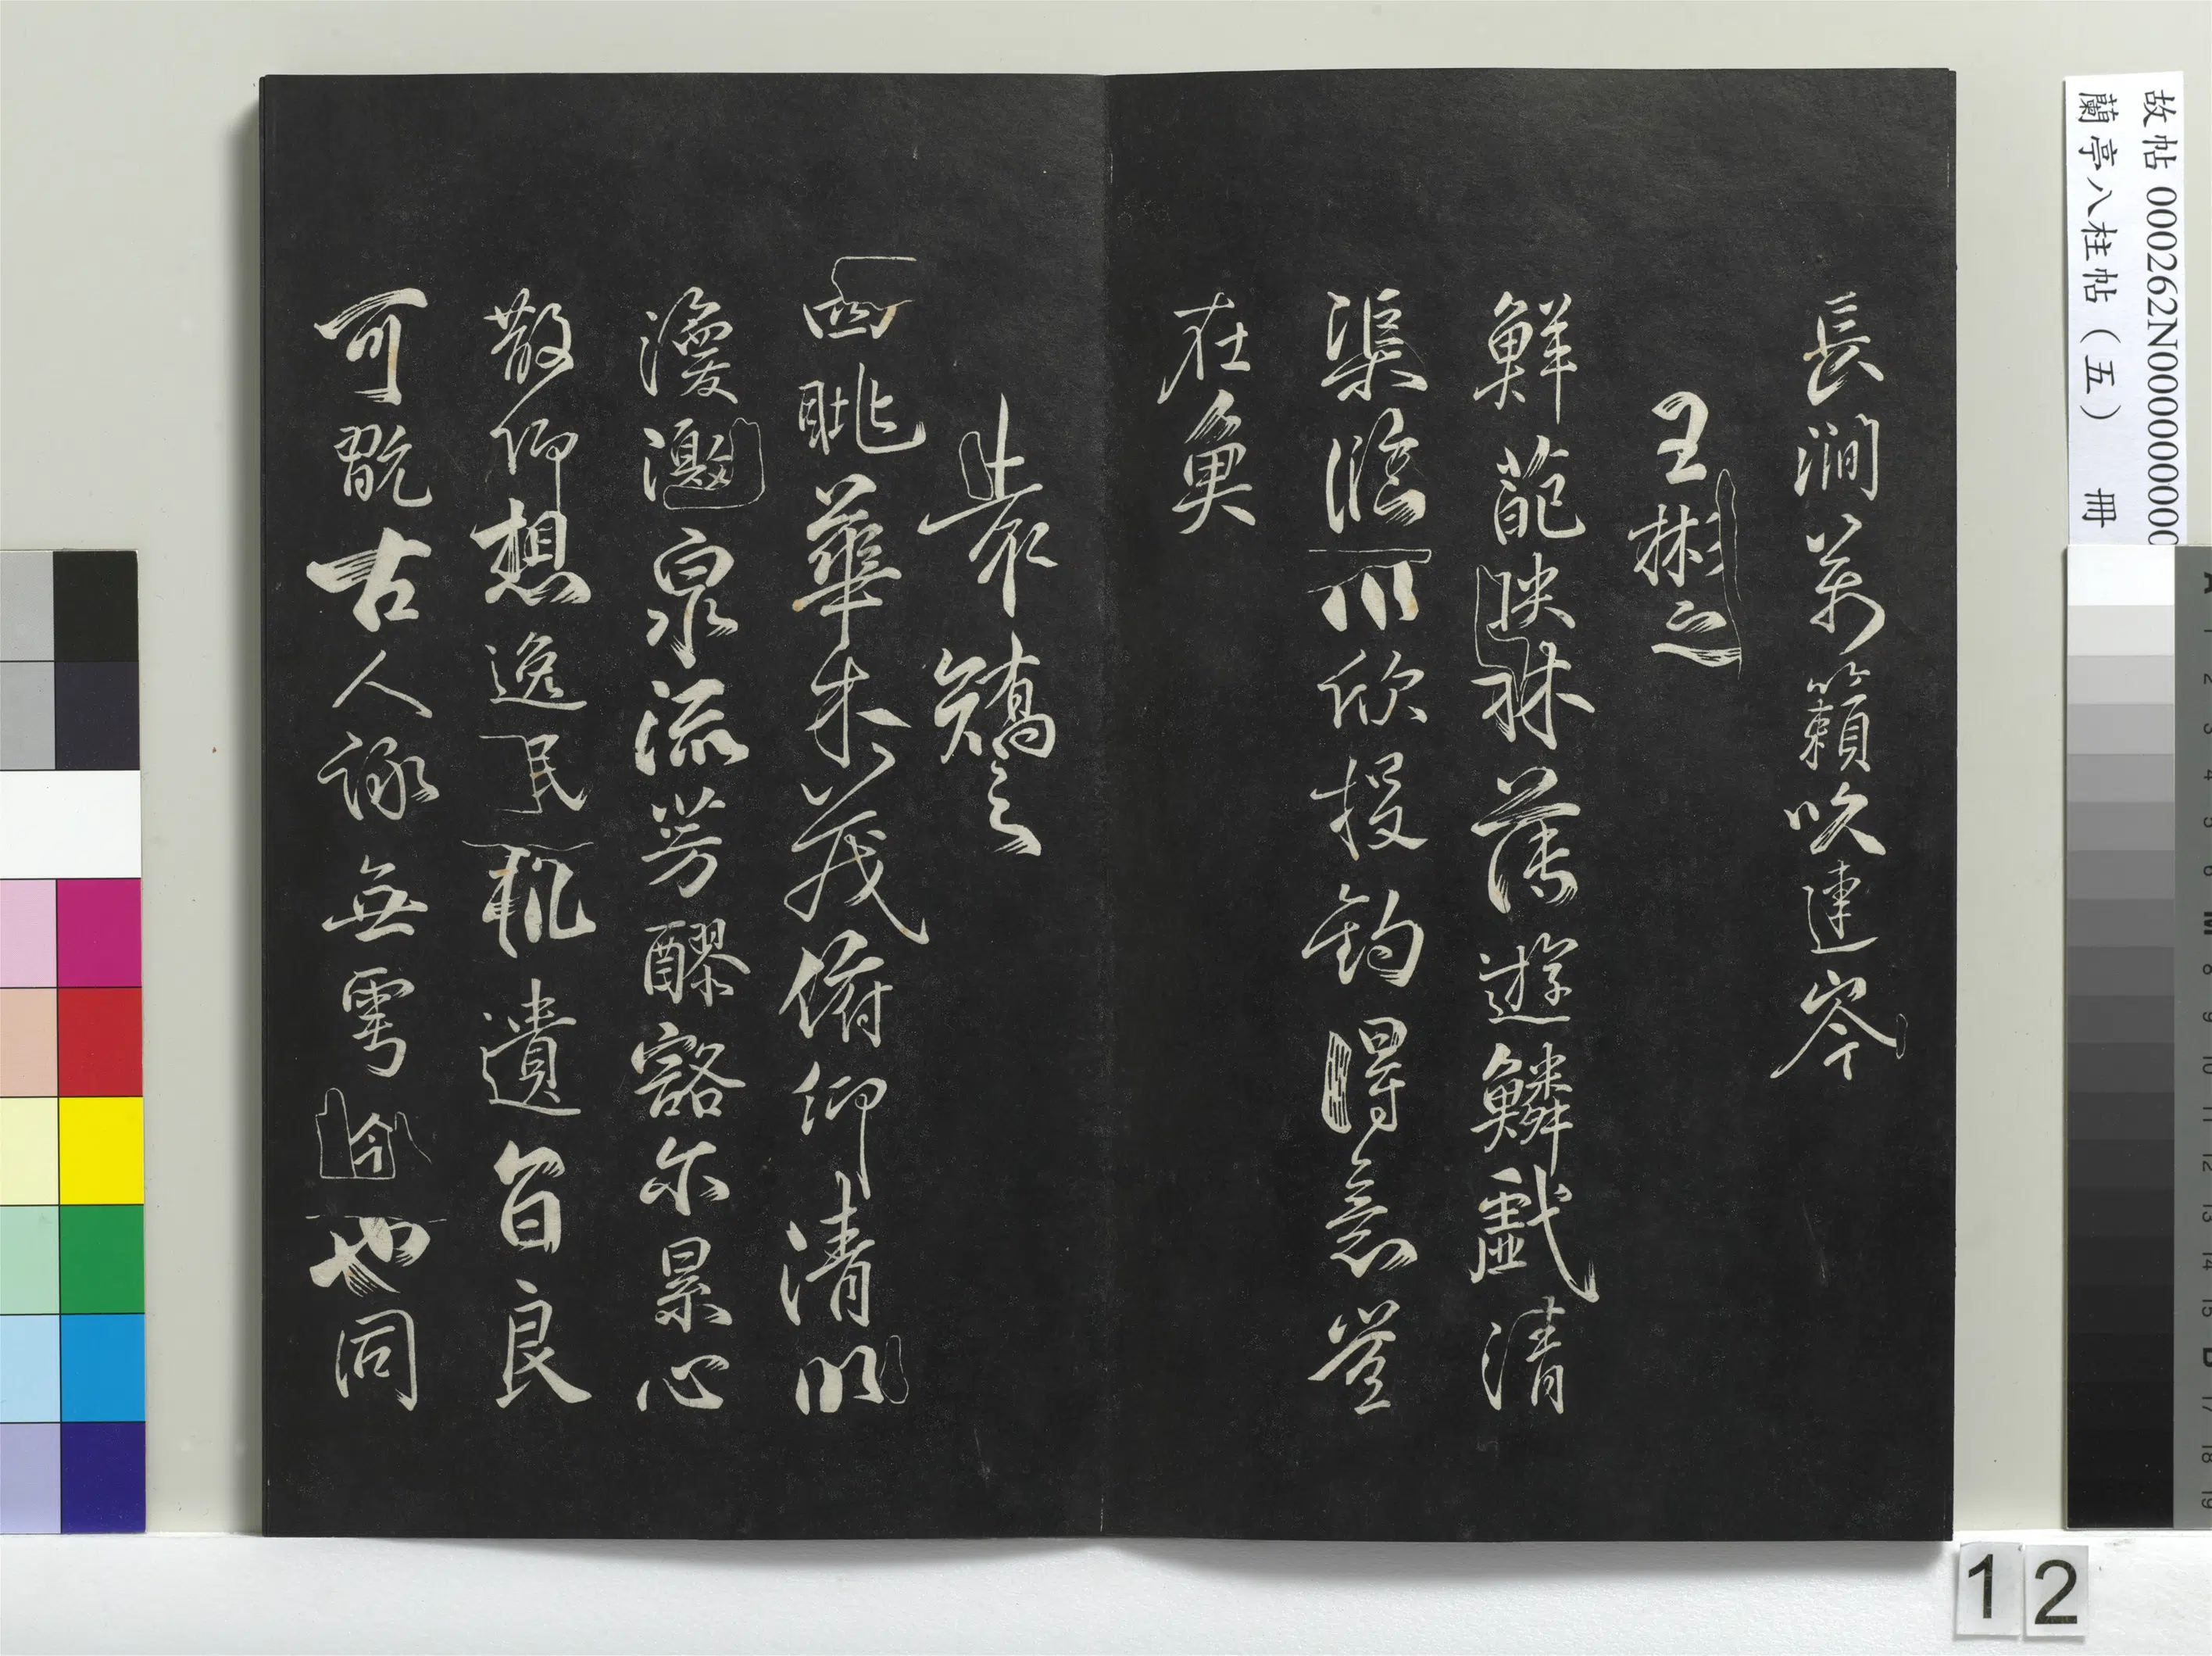 長澗萬籟吹連岑
王彬之
鮮葩映林薄遊鱗戲清
渠臨川欣投釣得意豈
在魚
袁嶠之
四眺華木茂俯仰清川
激泉流芳醪豁尔累心
散仰想逸民軌遺音良
可翫古人詠無雩今也同
故帖 000262N000000000
蘭亭八柱帖（五） 冊
12